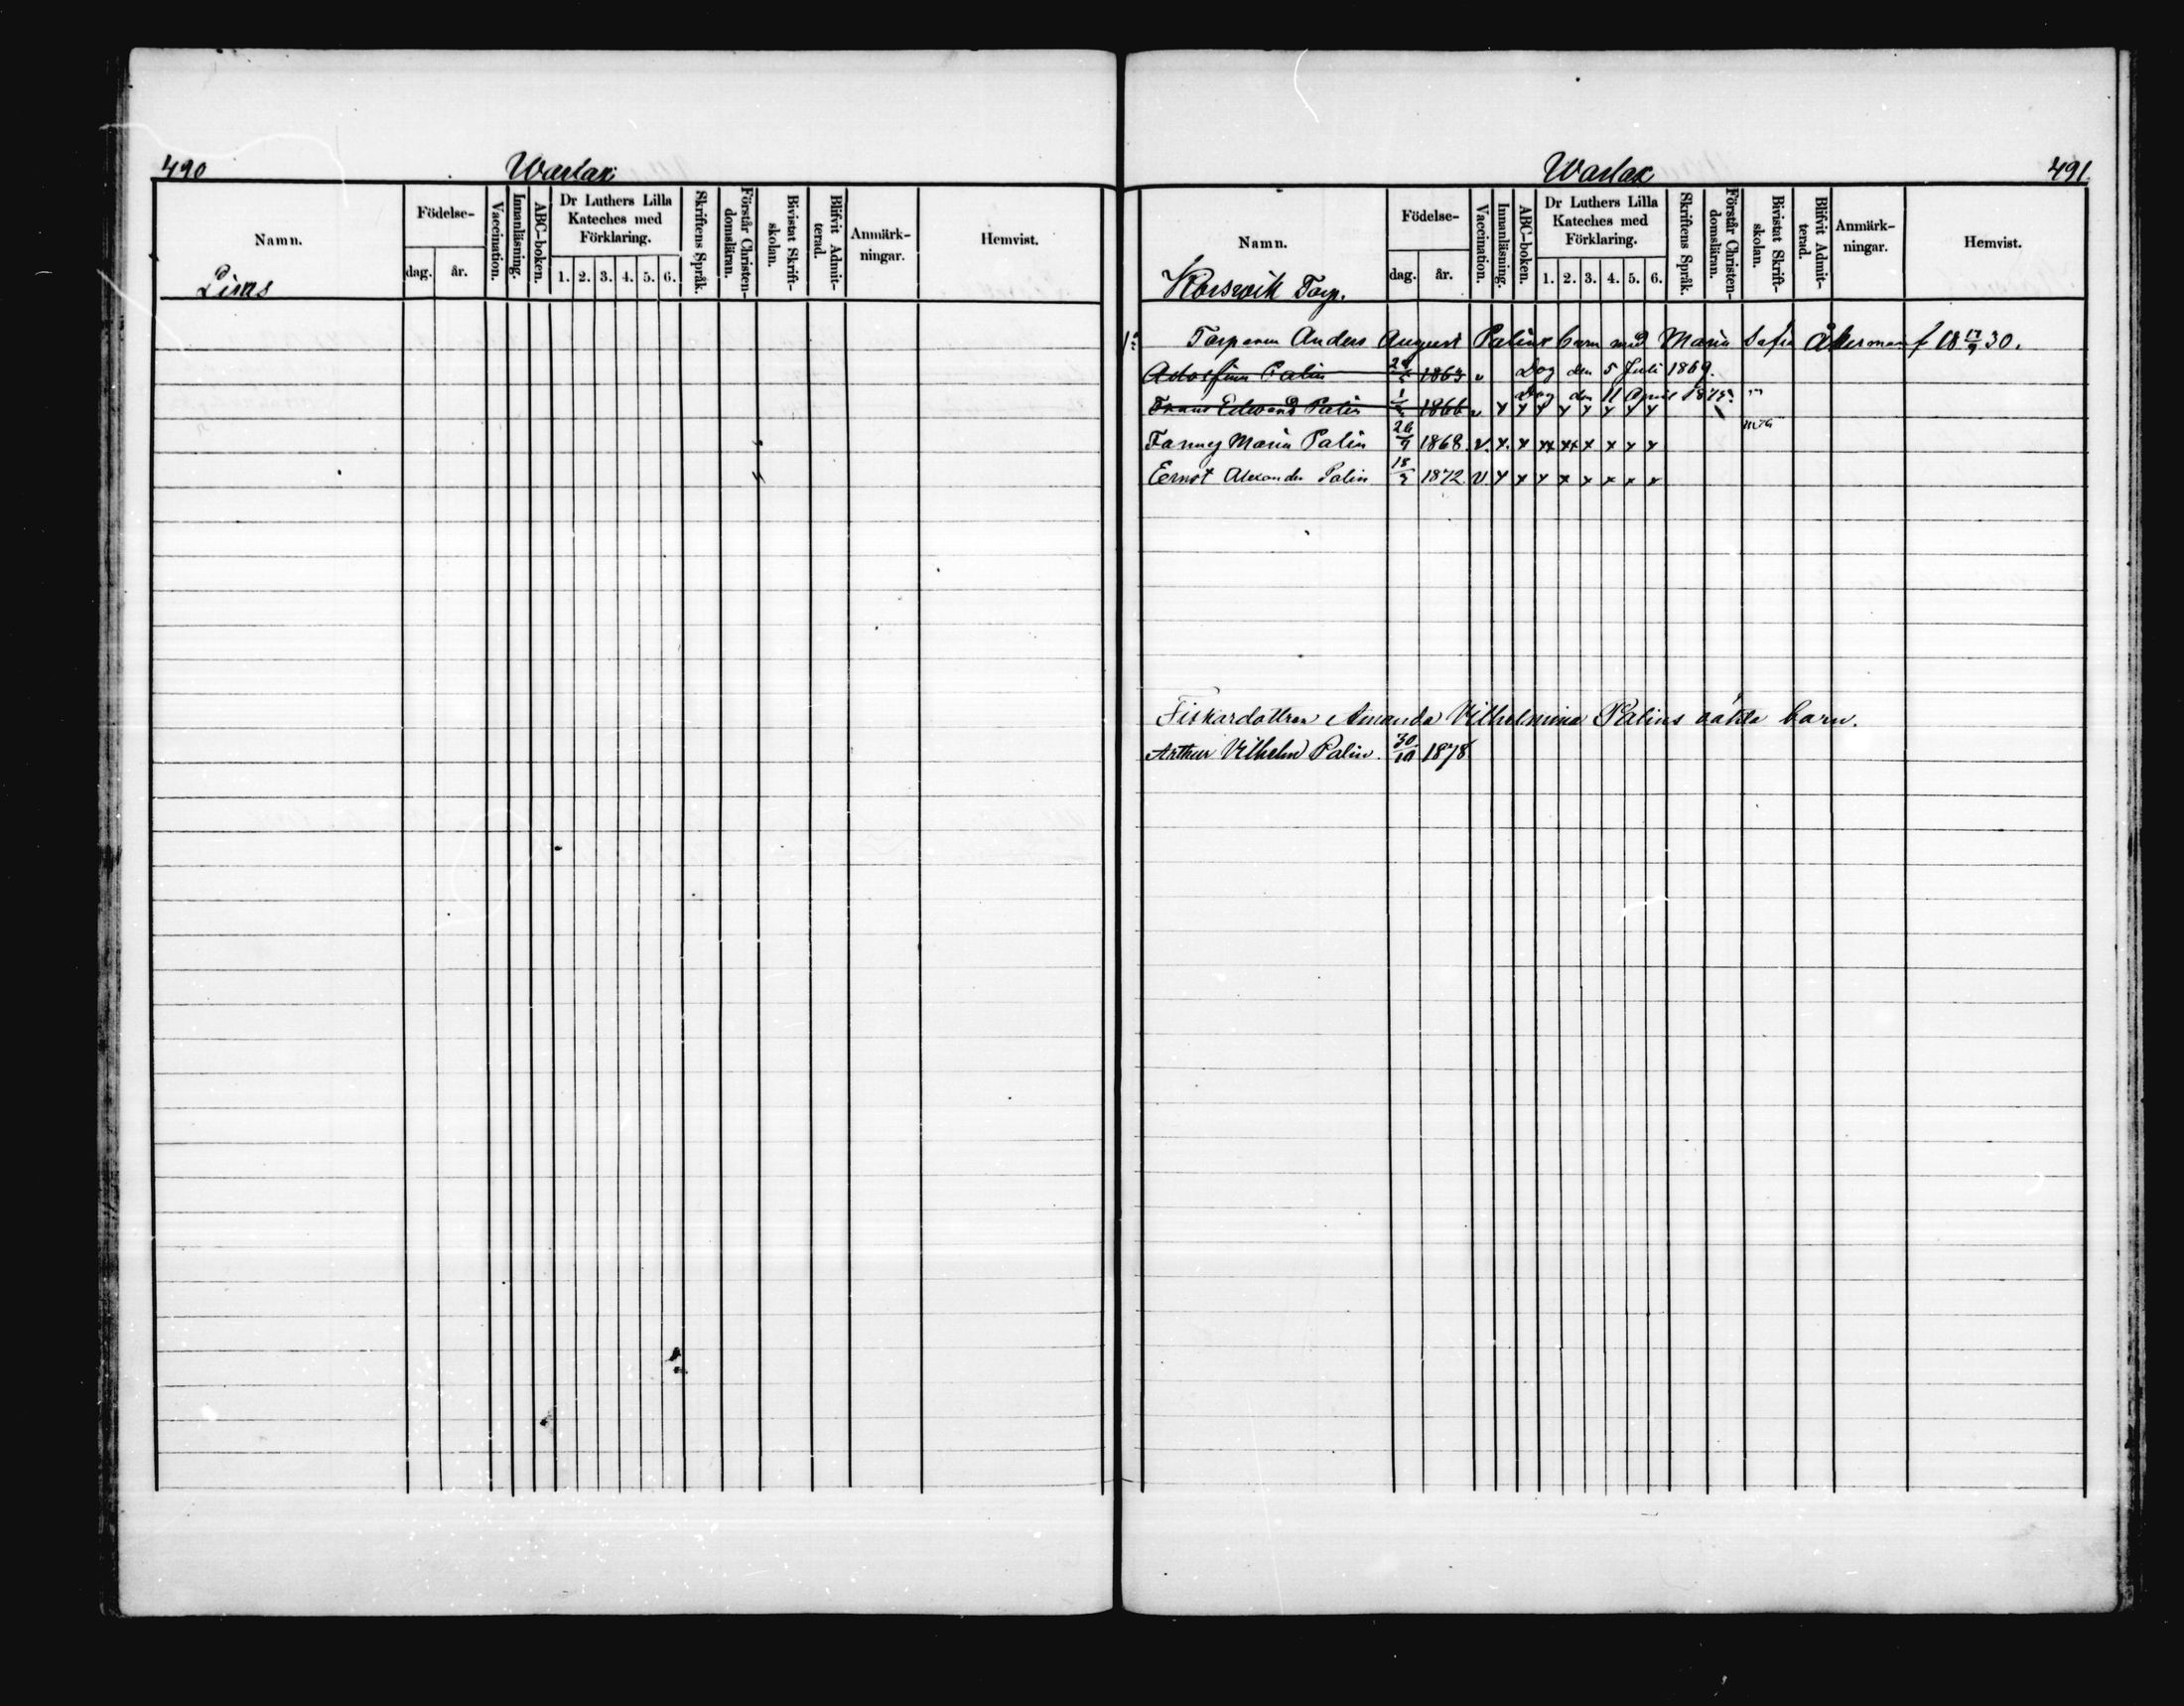 490
Warlax
Namn.
Födelse-
dag.
år.
Vaccination.
Innanläsning.
ABC-boken.
Dr Luthers Lilla
Kateches med
Förklaring.
1. 2. 3. 4. 5. 6.
Skriftens Språk.
Förstår Christen-
domsläran.
Bivistat Skrift-
skolan.
Blifvit Admit-
terad.
Anmärk-
ningar.
Hemvist.
Warlax
491
Namn.
Korswik Torp.
Födelse-
dag.
år.
Vaccination.
Innanläsning.
ABC-boken.
Dr Luthers Lilla
Kateches med
Förklaring.
1. 2. 3. 4. 5. 6.
Skriftens Språk.
Förstår Christen-
domsläran.
Bivistat Skrift-
skolan.
Blifvit Admit-
terad.
Anmärk-
ningar.
Hemvist.
Torparen Anders August Palins barn med Maria Sofia Åkerman f 18 17/9 30.
Adolfina Palin 1863 v Dog den 5 Juli 1869.
Dog den 11 April
Frans Edvard Palin 1866 v x x x x x x x x
Fanny Maria Palin 26/9 1868 v. x. x xx xx x x x x
Ernst Alexander Palin 1872 v x x x x x x x x
Fiskardottren Amanda Vilhelmina Palins oäkta barn.
Arthur Vilhelm Palin. 30/10 1878